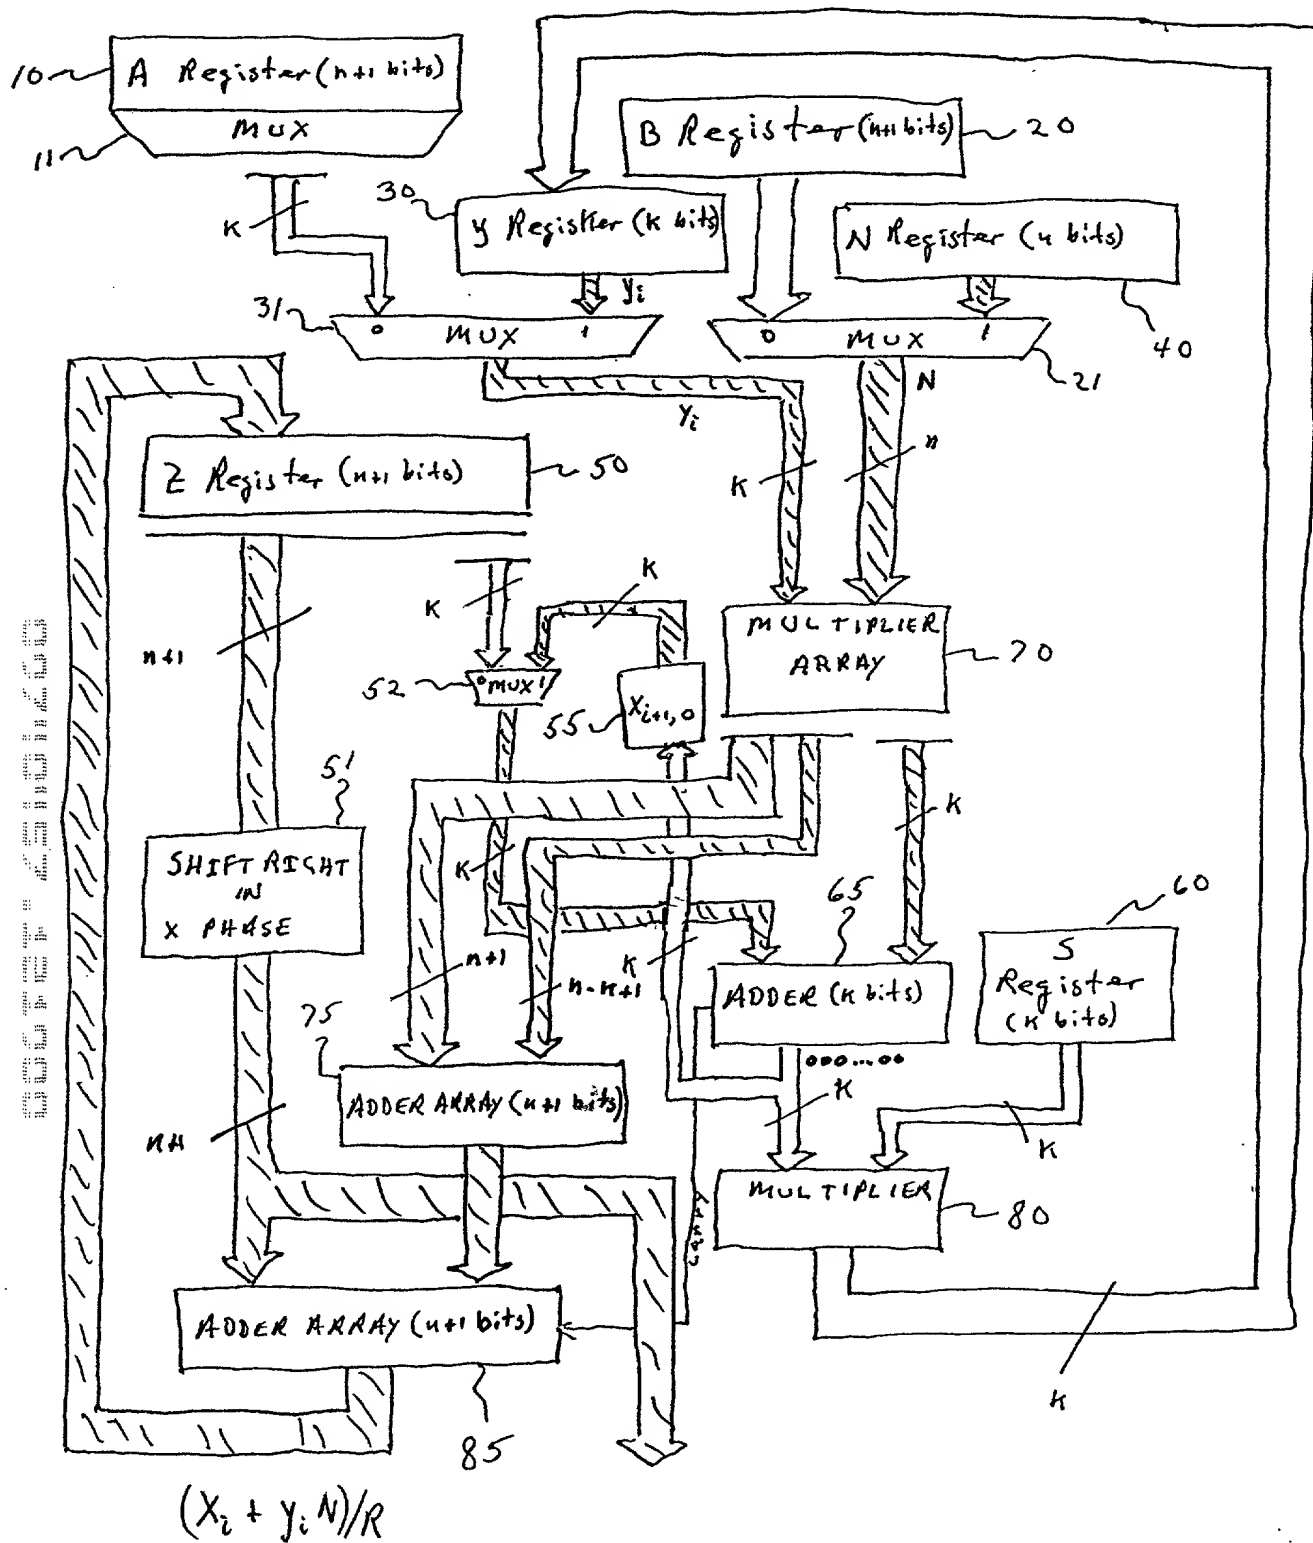 10
A Register (n+1 bits)
MUX
11
B Register (n+1 bits)
20
K
30
y Register (k bits)
N Register (n bits)
40
yi
31
0 MUX 1
0 MUX 1
21
N
yi
K
n
Z Register (n+1 bits)
50
K
K
n+1
52
0 MUX 1
55
Xi+1,0
MULTIPLIER
ARRAY
70
51
SHIFT RIGHT
IN
X PHASE
K
K
65
60
n+1
n-k+1
K
ADDER (k bits)
S
Register
(k bits)
75
000...00
ADDER ARRAY (n+1 bits)
K
K
n+1
MULTIPLIER
80
carry
ADDER ARRAY (n+1 bits)
85
K
(Xi + yi N)/R